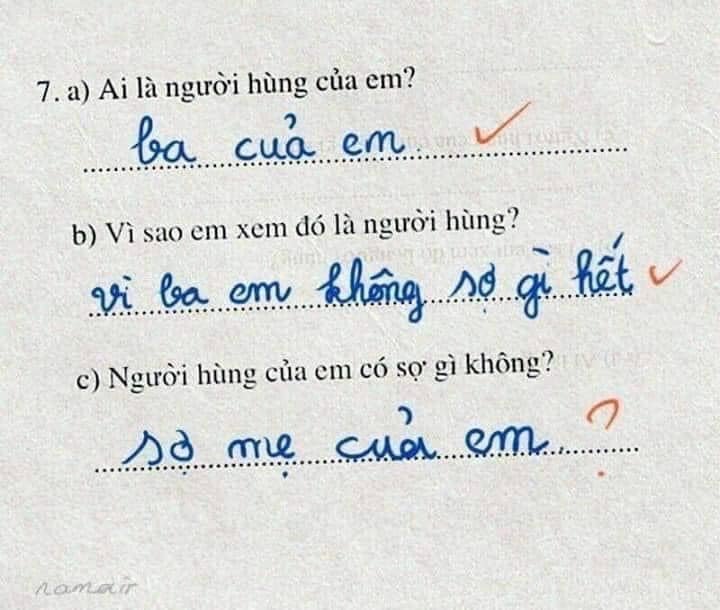 7. a) Ai là người hùng của em?
ba của em
b) Vì sao em xem đó là người hùng?
vì ba em không sợ gì hết
c) Người hùng của em có sợ gì không?
sợ mẹ của em ?
namair